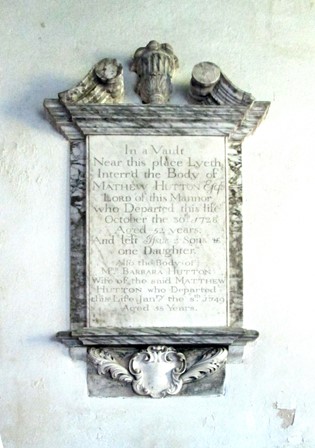 In a Vault
Near this place Lyeth
Interr'd the Body of
MATHEW HUTTON Esqr
LORD of this Mannor
who Departed this life
October the 30th
Aged 54 years.
And left Issue Sons &
one Daughter.
Also the Body of
Mrs BARBARA HUTTON
Wife of the said MATTHEW
HUTTON who Departed
this Life Jany the 8th
Aged Years.